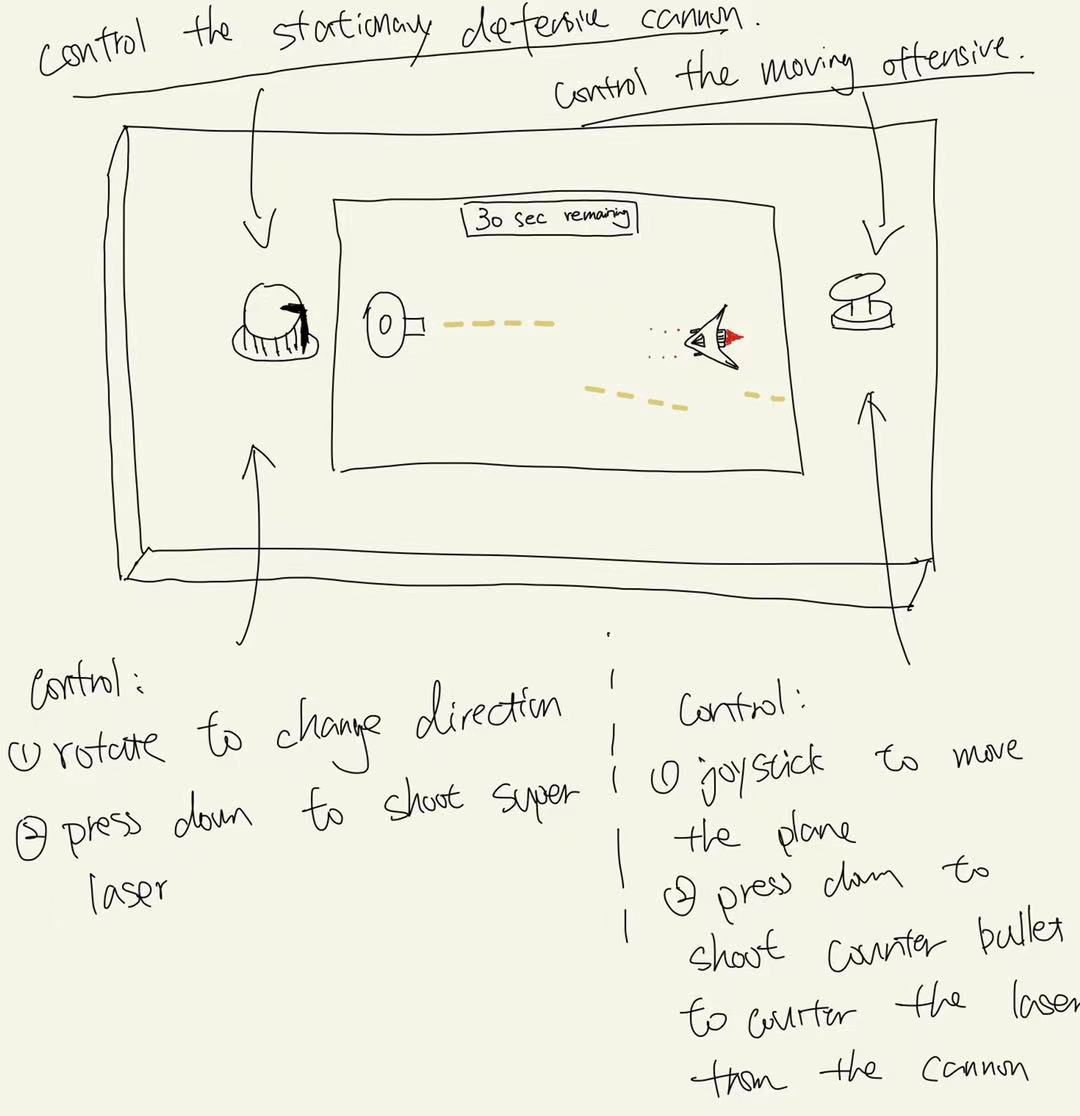 control the stationary defensive cannon.
Control the moving offensive.
30 sec remaining
Control:
① rotate to change direction
② press down to shoot super
laser
Control:
① joystick to move
the plane
② press down to
shoot counter bullet
to counter the laser
from the cannon